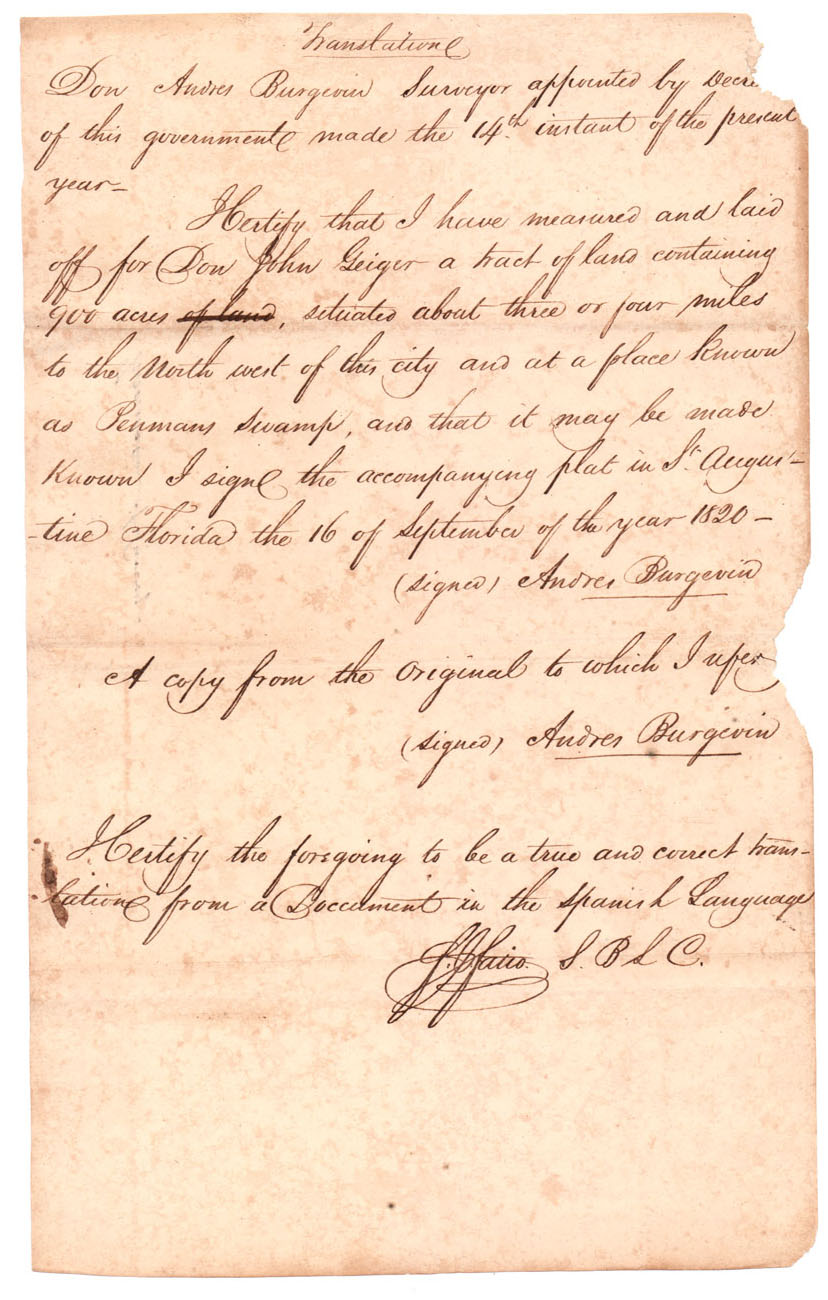 Translation
Don Andres Burgevin Surveyor appointed by Decre
of this government made the 14th instant of the present
year-
I Certify that I have measured and laid
off for Don John Geiger a tract of land containing
900 acres of land, situated about three or four miles
to the North west of this city and at a place known
as Penmans Swamp, and that it may be made
Known I sign the accompanying plat in St. Augus-
-tine Florida the 16 of September of the year 1820-
(signed) Andres Burgevin
A copy from the Original to which I refer
(signed) Andres Burgevin
I Certify the foregoing to be a true and correct trans-
lation from a Document in the Spanish Language
S. B L C.